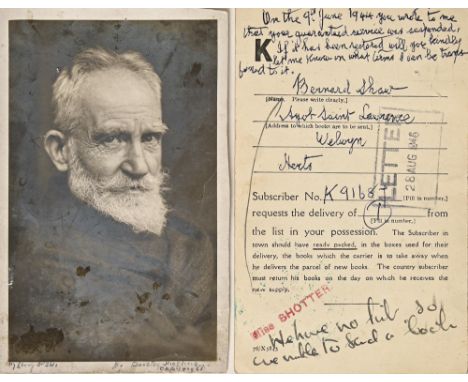 On the 9th June 1944 you wrote to me
that your guaranteed service was suspended.
If it has been restored will you kindly
let me know on what terms I can be trans-
ferred to it.
K
Bernard Shaw
[Name. Please write clearly.]
Ayot Saint Lawrence
[Address to which books are to be sent.]
Welwyn
Herts
LETTE
28 AUG 1946
Subscriber No. K 9168 [Fill in number.]
requests the delivery of from
[Fill in number.]
the list in your possession. The Subscriber in
town should have ready packed, in the boxes used for their
delivery, the books which the carrier is to take away when
he delivers the parcel of new books. The country subscriber
must return his books on the day on which he receives the
new supply.
Miss SHOTTER
We have no list so
unable to send a book